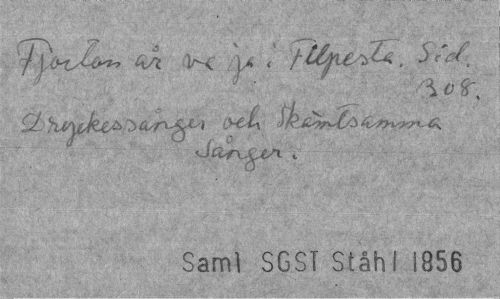 Fjorton år va ja i Filpesta. Sid.
308.
Dryckessånger och Skämtsamma
Sånger.
Saml SGST Ståhl 1856